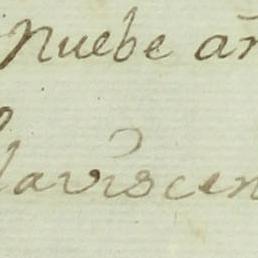 Nuebe añ
laviscen